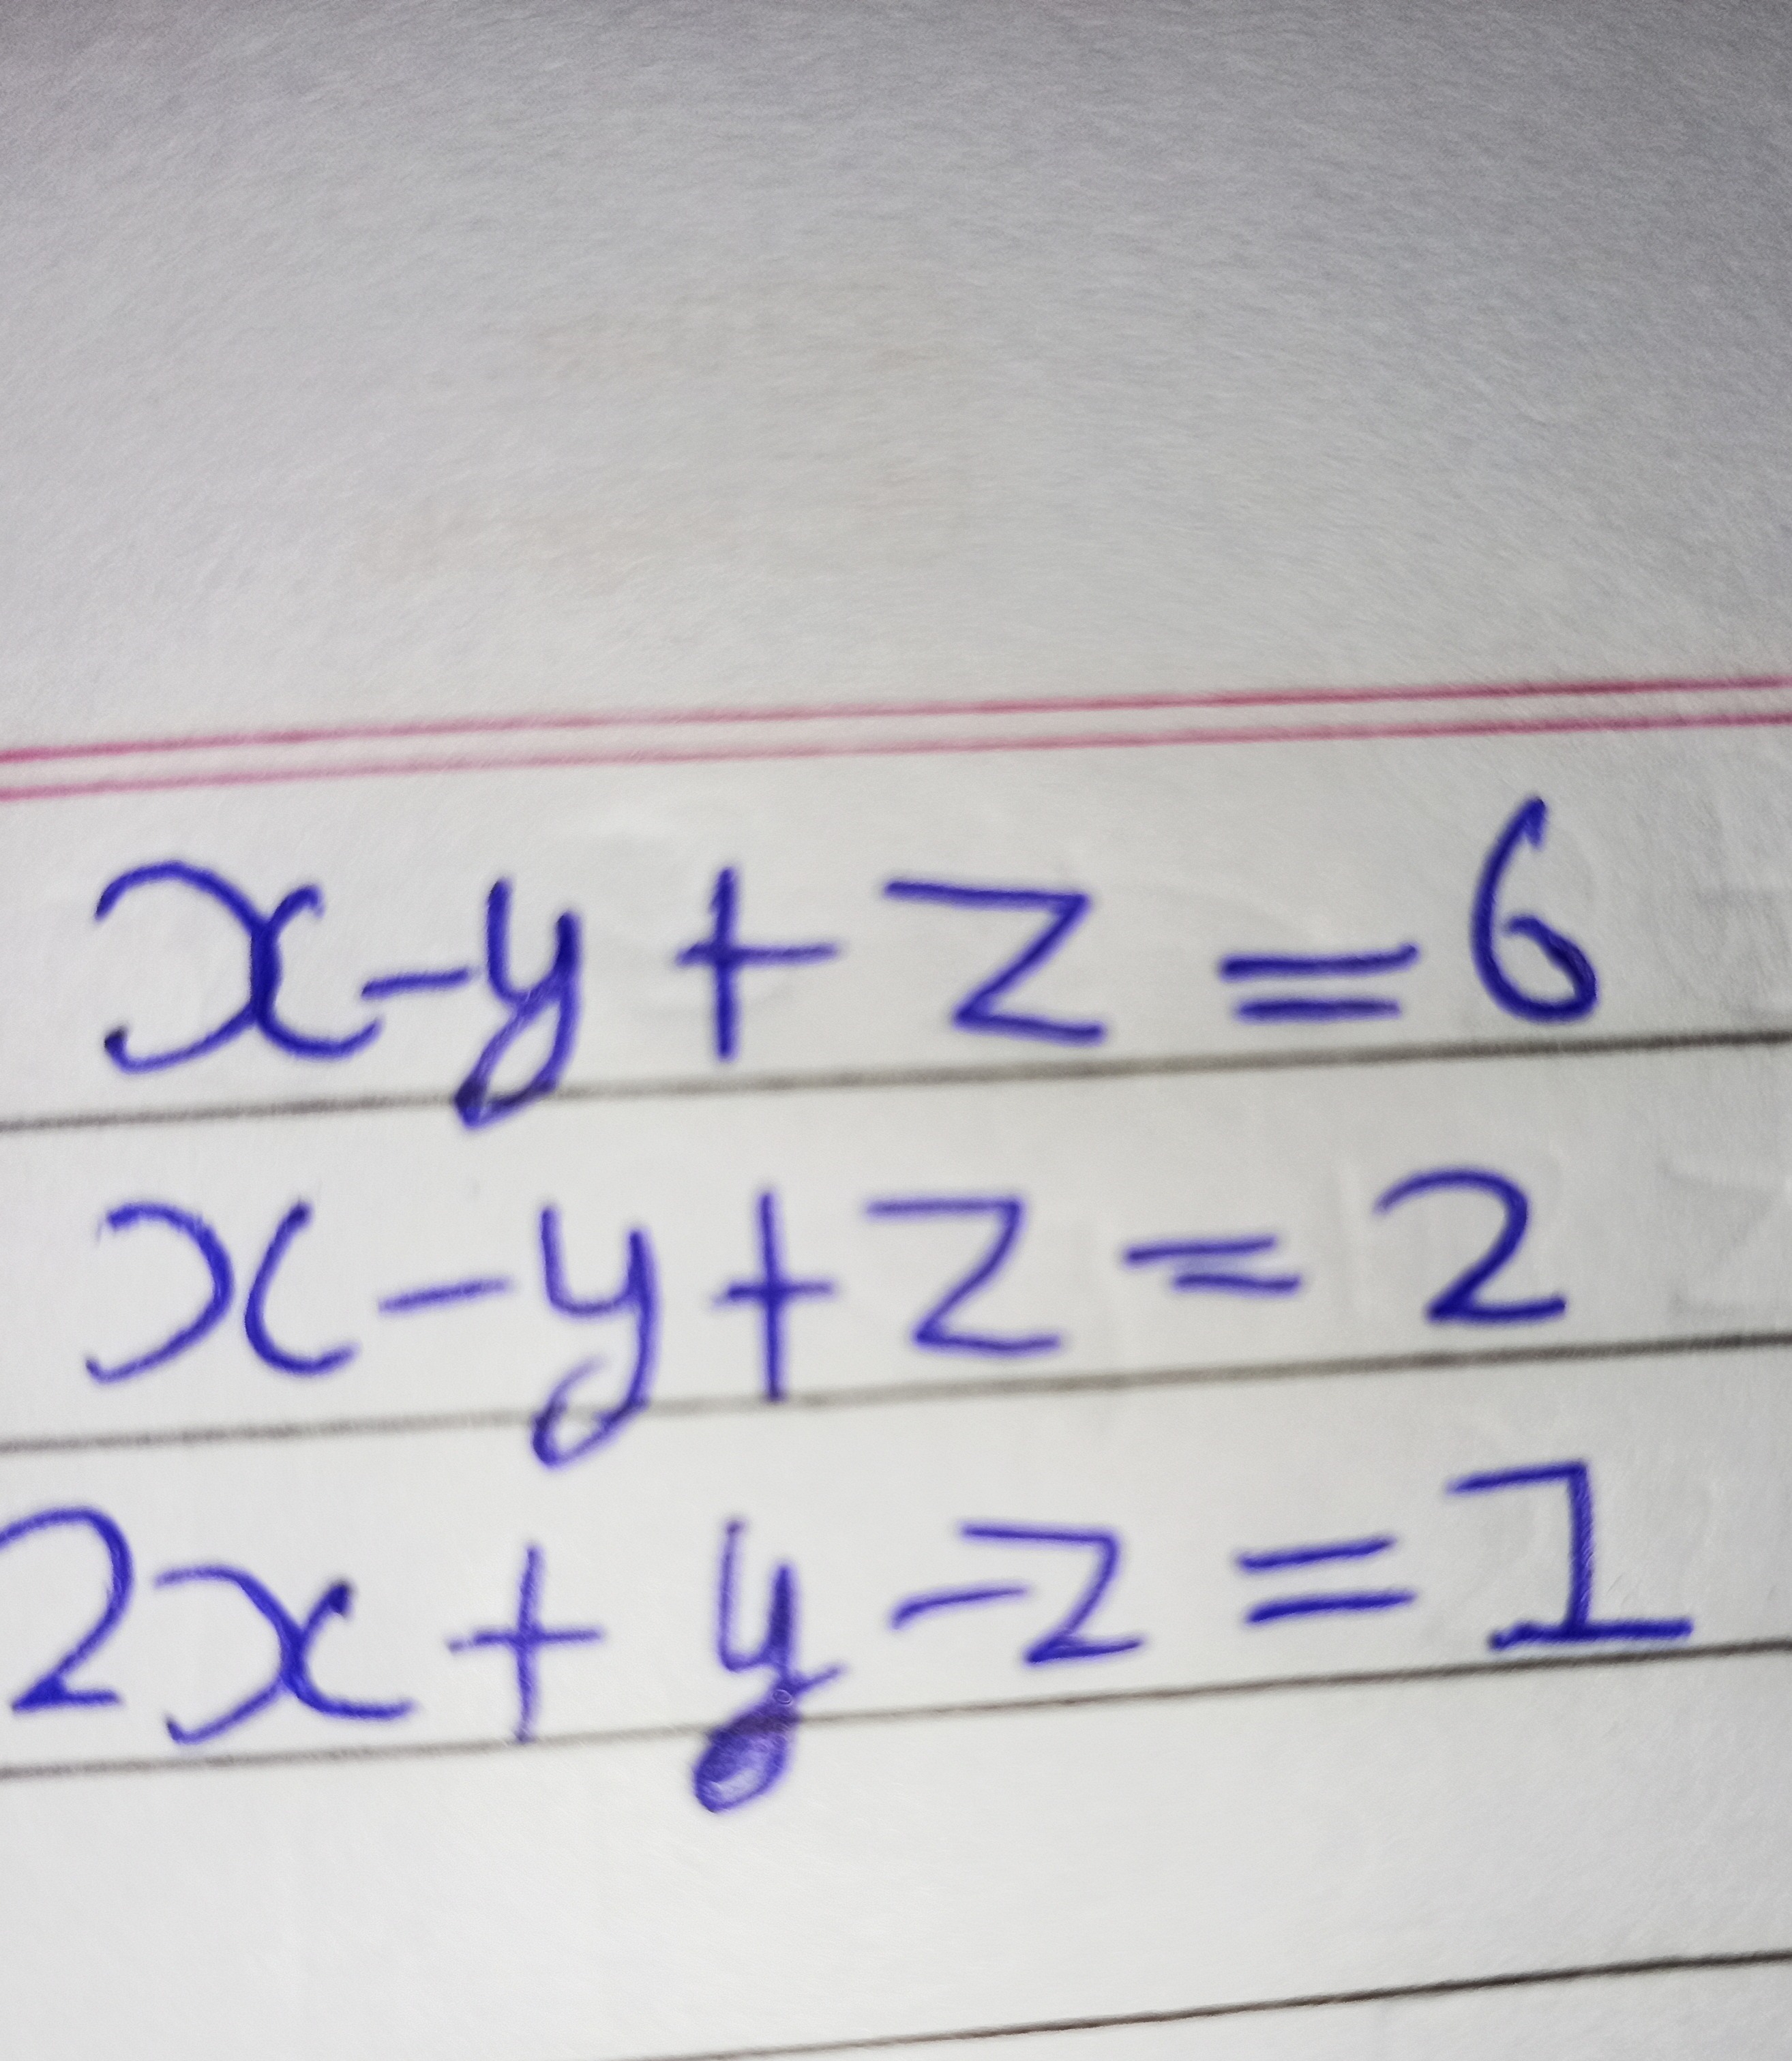 x-y+z=6
x-y+z=2
2x+y-z=1